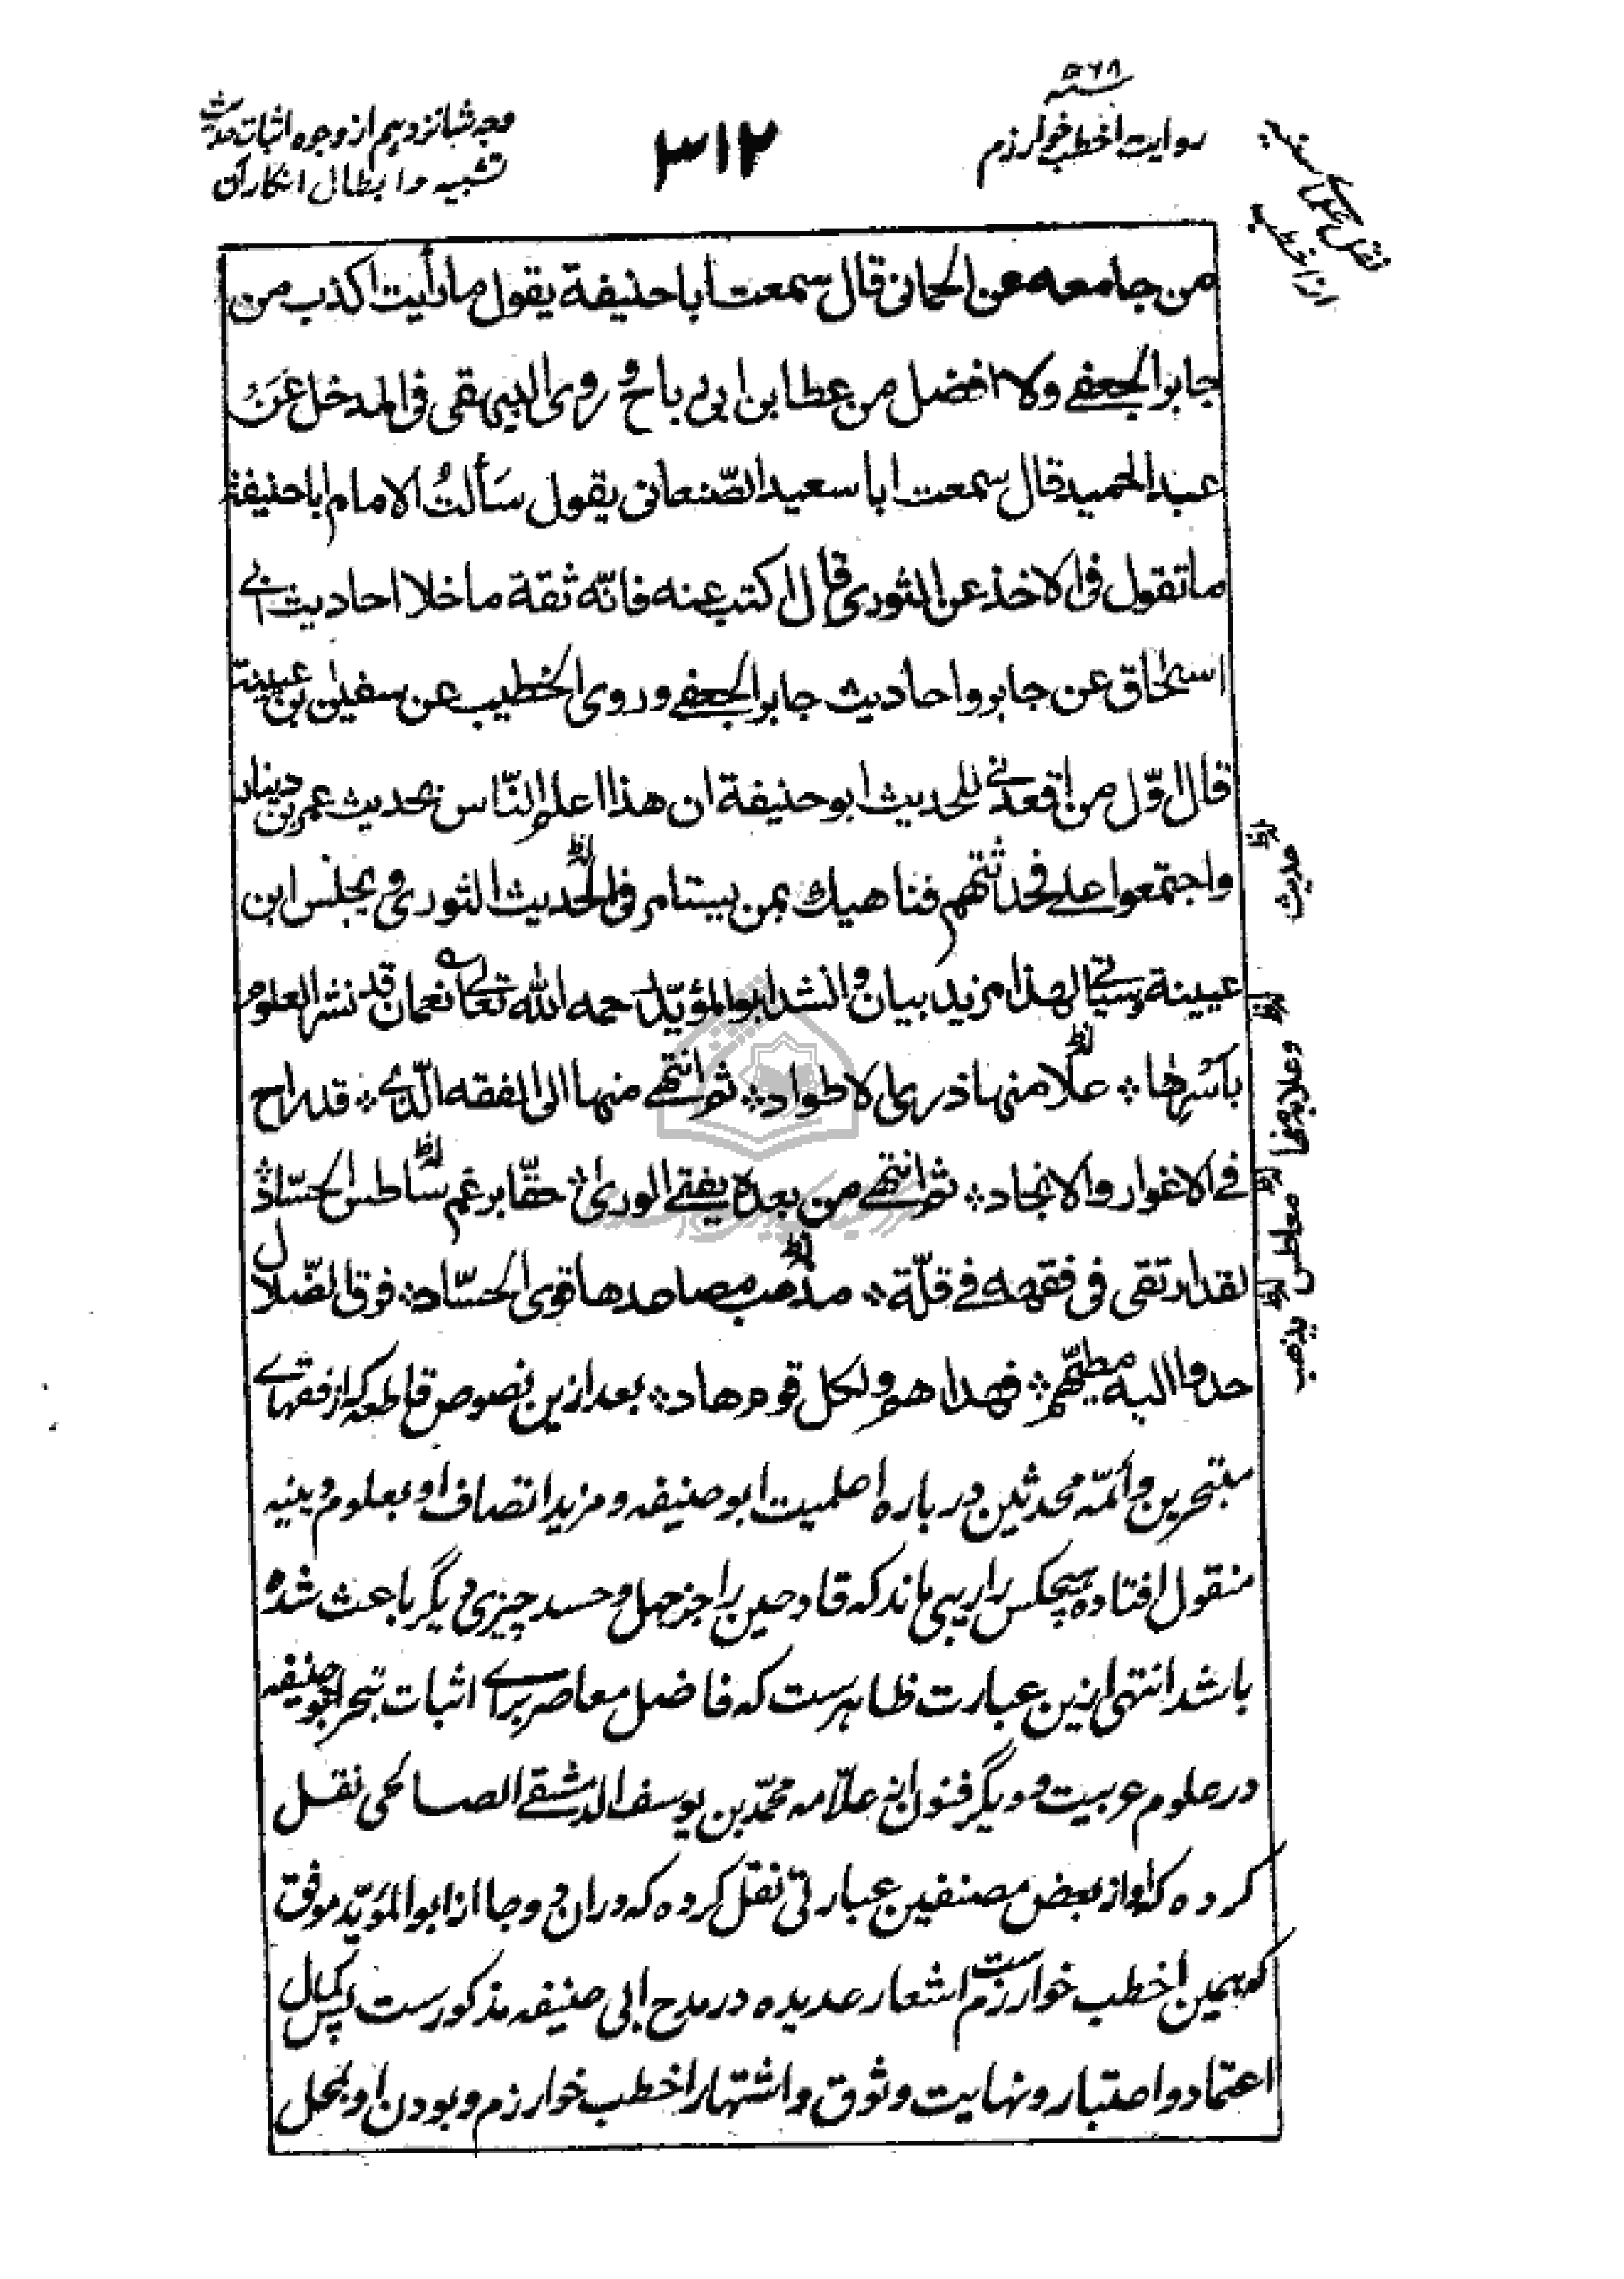 سنه ٥٦٨
روایت اخطب خوارزم
٣١٢
وجه شانزدهم از وجوه اثبات حدیث
تشبیه و ابطال انکار آن
نقل علمای سنیه
از اخطب
من جامعه عن الحمانی قال سمعت ابا حنیفة یقول ما رأیت اکذب من
جابر الجعفے ولا افضل من عطا بن ابی رباح و روی البیهقی فی المدخل عَنْ
عبد الحمید قال سمعت ابا سعید الصّنعانی یقول سَألتُ الامام ابا حنیفة
ما تقول فی الاخذ عن الثوری قال اکتب عنه فانّه ثقة ما خلا احادیث ابی
اسحاق عن جابر و احادیث جابر الجعفے و روی الخطیب عن سفیان بن عیینة
قال اوّل من اقعدنی للحدیث ابو حنیفة ان هذا اعلم النّاس بحدیث عمر بن دینار
واجتمعوا علی فحدثتهم فناهیك بمن یستامر فی الحدیث الثوری و یجلس ابن
عیینة و سیاتی لهذا مزید بیان و انشد ابو المؤیّد رحمه الله تعالی نعمان قد نشر العلوم
باسْرِها ٭ علا منها ذری کالاطواد ٭ ثم انتهے منها الی الفقه الّذے ٭ قد راح
فے الاغوار والانجاد ٭ ثم انتهے من بعده یفتے الوری ٭ حقّا برغم ساطس الحسّاد ٭
لقد ارتقی فی فقهه فے قلّة ٭ مذهب مصاعدها قوی الحسّاد ٭ فوق الضّلال
حدوا الیه مطیّهم ٭ فهداهم ولکل قوم هاد ٭ بعد ازین نصوص قاطعه که از فقهاے
متبحرین و ائمّه محدثین درباره اعلمیت ابو حنیفه و مزید اتصاف او بعلوم دینیه
منقول افتاده هیچکس را ریبی نماند که قادحین را جز جهل و حسد چیزی دیگر باعث شده
باشد انتهی ازین عبارت ظاهرست که فاضل معاصر براے اثبات تبحر ابو حنیفه
در علوم عربیت و دیگر فنون از علّامه محمّد بن یوسف الدمشقے الصالحی نقل
کرده که او از بعض مصنفین عبارتی نقل کرده که دران دو جا از ابو المؤیّد موفق
که همین اخطب خوارزم ست اشعار عدیده در مدح ابی حنیفه مذکورست پس کمال
اعتماد و اعتبار و نهایت وثوق و اشتهار اخطب خوارزم و بودن او بمحل
حدیث
وعلا به منها
معاطس
یذهب